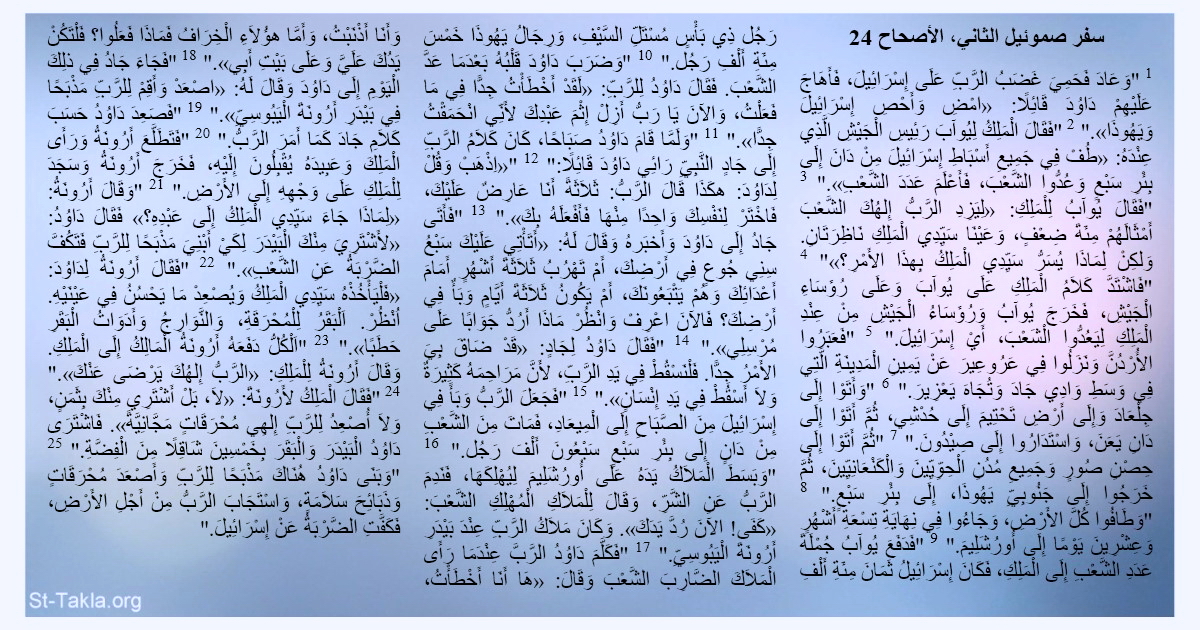 سفر صموئيل الثاني، الأصحاح 24
1 "وَعَادَ فَحَمِيَ غَضَبُ الرَّبِّ عَلَى إِسْرَائِيلَ، فَأَهَاجَ
عَلَيْهِمْ دَاوُدَ قَائِلًا: «امْضِ وَأَحْصِ إِسْرَائِيلَ
وَيَهُوذَا»." 2 "فَقَالَ الْمَلِكُ لِيُوآبَ رَئِيسِ الْجَيْشِ الَّذِي
عِنْدَهُ: «طُفْ فِي جَمِيعِ أَسْبَاطِ إِسْرَائِيلَ مِنْ دَانَ إِلَى
بِئْرِ سَبْعٍ وَعُدُّوا الشَّعْبَ، فَأَعْلَمَ عَدَدَ الشَّعْبِ»." 3
"فَقَالَ يُوآبُ لِلْمَلِكِ: «لِيَزِدِ الرَّبُّ إِلهُكَ الشَّعْبَ
أَمْثَالَهُمْ مِئَةَ ضِعْفٍ، وَعَيْنَا سَيِّدِي الْمَلِكِ نَاظِرَتَانِ.
وَلكِنْ لِمَاذَا يُسَرُّ سَيِّدِي الْمَلِكُ بِهذَا الأَمْرِ؟»" 4
"فَاشْتَدَّ كَلاَمُ الْمَلِكِ عَلَى يُوآبَ وَعَلَى رُؤَسَاءِ
الْجَيْشِ، فَخَرَجَ يُوآبُ وَرُؤَسَاءُ الْجَيْشِ مِنْ عِنْدِ
الْمَلِكِ لِيَعُدُّوا الشَّعْبَ، أَيْ إِسْرَائِيلَ." 5 "فَعَبَرُوا
الأُرْدُنَّ وَنَزَلُوا فِي عَرُوعِيرَ عَنْ يَمِينِ الْمَدِينَةِ الَّتِي
فِي وَسَطِ وَادِي جَادَ وَتُجَاهَ يَعْزِيرَ." 6 "وَأَتَوْا إِلَى
جِلْعَادَ وَإِلَى أَرْضِ تَحْتِيمَ إِلَى حُدْشِي، ثُمَّ أَتَوْا إِلَى
دَانِ يَعَنَ، وَاسْتَدَارُوا إِلَى صِيْدُونَ." 7 "ثُمَّ أَتَوْا إِلَى
حِصْنِ صُورٍ وَجَمِيعِ مُدُنِ الْحِوِّيِّينَ وَالْكَنْعَانِيِّينَ، ثُمَّ
خَرَجُوا إِلَى جَنُوبِيِّ يَهُوذَا، إِلَى بِئْرِ سَبْعٍ." 8
"وَطَافُوا كُلَّ الأَرْضِ، وَجَاءُوا فِي نِهَايَةِ تِسْعَةِ أَشْهُرٍ
وَعِشْرِينَ يَوْمًا إِلَى أُورُشَلِيمَ." 9 "فَدَفَعَ يُوآبُ جُمْلَةَ
عَدَدِ الشَّعْبِ إِلَى الْمَلِكِ، فَكَانَ إِسْرَائِيلُ ثَمَانَ مِئَةِ أَلْفِ
رَجُل ذِي بَأْسٍ مُسْتَلِّ السَّيْفِ، وَرِجَالُ يَهُوذَا خَمْسَ
مِئَةِ أَلْفِ رَجُل." 10 "وَضَرَبَ دَاوُدَ قَلْبُهُ بَعْدَمَا عَدَّ
الشَّعْبَ. فَقَالَ دَاوُدُ لِلرَّبِّ: «لَقَدْ أَخْطَأْتُ جِدًّا فِي مَا
فَعَلْتُ، وَالآنَ يَا رَبُّ أَزِلْ إِثْمَ عَبْدِكَ لأَنِّي انْحَمَقْتُ
جِدًّا»." 11 "وَلَمَّا قَامَ دَاوُدُ صَبَاحًا، كَانَ كَلاَمُ الرَّبِّ
إِلَى جَادٍ النَّبِيِّ رَائِي دَاوُدَ قَائِلًا:" 12 "«اِذْهَبْ وَقُلْ
لِدَاوُدَ: هكَذَا قَالَ الرَّبُّ: ثَلاَثَةً أَنَا عَارِضٌ عَلَيْكَ،
فَاخْتَرْ لِنَفْسِكَ وَاحِدًا مِنْهَا فَأَفْعَلَهُ بِكَ»." 13 "فَأَتَى
جَادُ إِلَى دَاوُدَ وَأَخبَرهُ وَقَالَ لَهُ: «أَتَأْتِي عَلَيْكَ سَبْعُ
سِنِي جُوعٍ فِي أَرْضِكَ، أَمْ تَهْرُبُ ثَلاَثَةَ أَشْهُرٍ أَمَامَ
أَعْدَائِكَ وَهُمْ يَتْبَعُونَكَ، أَمْ يَكُونُ ثَلاَثَةَ أَيَّامٍ وَبَأٌ فِي
أَرْضِكَ؟ فَالآنَ اعْرِفْ وَانْظُرْ مَاذَا أَرُدُّ جَوَابًا عَلَى
مُرْسِلِي»." 14 "فَقَالَ دَاوُدُ لِجَادٍ: «قَدْ ضَاقَ بِيَ
الأَمْرُ جِدًّا. فَلْنَسْقُطْ فِي يَدِ الرَّبِّ، لأَنَّ مَرَاحِمَهُ كَثِيرَةٌ
وَلاَ أَسْقُطْ فِي يَدِ إِنْسَانٍ»." 15 "فَجَعَلَ الرَّبُّ وَبَأً فِي
إِسْرَائِيلَ مِنَ الصَّبَاحِ إِلَى الْمِيعَادِ، فَمَاتَ مِنَ الشَّعْبِ
مِنْ دَانٍ إِلَى بِئْرِ سَبْعٍ سَبْعُونَ أَلْفَ رَجُل." 16
"وَبَسَطَ الْمَلاَكُ يَدَهُ عَلَى أُورُشَلِيمَ لِيُهْلِكَهَا، فَنَدِمَ
الرَّبُّ عَنِ الشَّرِّ، وَقَالَ لِلْمَلاَكِ الْمُهْلِكِ الشَّعْبَ:
«كَفَى! الآنَ رُدَّ يَدَكَ». وَكَانَ مَلاَكُ الرَّبِّ عِنْدَ بَيْدَرِ
أَرُونَةَ الْيَبُوسِيِّ." 17 "فَكَلَّمَ دَاوُدُ الرَّبَّ عِنْدَمَا رَأَى
الْمَلاَكَ الضَّارِبَ الشَّعْبَ وَقَالَ: «هَا أَنَا أَخْطَأْتُ،
وَأَنَا أَذْنَبْتُ، وَأَمَّا هؤُلاَءِ الْخِرَافُ فَمَاذَا فَعَلُوا؟ فَلْتَكُنْ
يَدُكَ عَلَيَّ وَعَلَى بَيْتِ أَبِي»." 18 "فَجَاءَ جَادُ فِي ذلِكَ
الْيَوْمِ إِلَى دَاوُدَ وَقَالَ لَهُ: «اصْعَدْ وَأَقِمْ لِلرَّبِّ مَذْبَحًا
فِي بَيْدَرِ أَرُونَةَ الْيَبُوسِيِّ»." 19 "فَصَعِدَ دَاوُدُ حَسَبَ
كَلاَمِ جَادَ كَمَا أَمَرَ الرَّبُّ." 20 "فَتَطَلَّعَ أَرُونَةُ وَرَأَى
الْمَلِكَ وَعَبِيدَهُ يُقْبِلُونَ إِلَيْهِ، فَخَرَجَ أَرُونَةُ وَسَجَدَ
لِلْمَلِكِ عَلَى وَجْهِهِ إِلَى الأَرْضِ." 21 "وَقَالَ أَرُونَةُ:
«لِمَاذَا جَاءَ سَيِّدِي الْمَلِكُ إِلَى عَبْدِهِ؟» فَقَالَ دَاوُدُ:
«لأَشْتَرِيَ مِنْكَ الْبَيْدَرَ لِكَيْ أَبْنِيَ مَذْبَحًا لِلرَّبِّ فَتَكُفَّ
الضَّرْبَةُ عَنِ الشَّعْبِ»." 22 "فَقَالَ أَرُونَةُ لِدَاوُدَ:
«فَلْيَأْخُذْهُ سَيِّدِي الْمَلِكُ وَيُصْعِدْ مَا يَحْسُنُ فِي عَيْنَيْهِ.
اُنْظُرْ. اَلْبَقَرُ لِلْمُحْرَقَةِ، وَالنَّوَارِجُ وَأَدَوَاتُ الْبَقَرِ
حَطَبًا»." 23 "اَلْكُلُّ دَفَعَهُ أَرُونَةُ الْمَالِكُ إِلَى الْمَلِكِ.
وَقَالَ أَرُونَةُ لِلْمَلِكِ: «الرَّبُّ إِلهُكَ يَرْضَى عَنْكَ»."
24 "فَقَالَ الْمَلِكُ لأَرُونَةَ: «لاَ، بَلْ أَشْتَرِي مِنْكَ بِثَمَنٍ،
وَلاَ أُصْعِدُ لِلرَّبِّ إِلهِي مُحْرَقَاتٍ مَجَّانِيَّةً». فَاشْتَرَى
دَاوُدُ الْبَيْدَرَ وَالْبَقَرَ بِخَمْسِينَ شَاقِلًا مِنَ الْفِضَّةِ." 25
"وَبَنَى دَاوُدُ هُنَاكَ مَذْبَحًا لِلرَّبِّ وَأَصْعَدَ مُحْرَقَاتٍ
وَذَبَائِحَ سَلاَمَةٍ، وَاسْتَجَابَ الرَّبُّ مِنْ أَجْلِ الأَرْضِ،
فَكَفَّتِ الضَّرْبَةُ عَنْ إِسْرَائِيلَ."
St-Takla.org